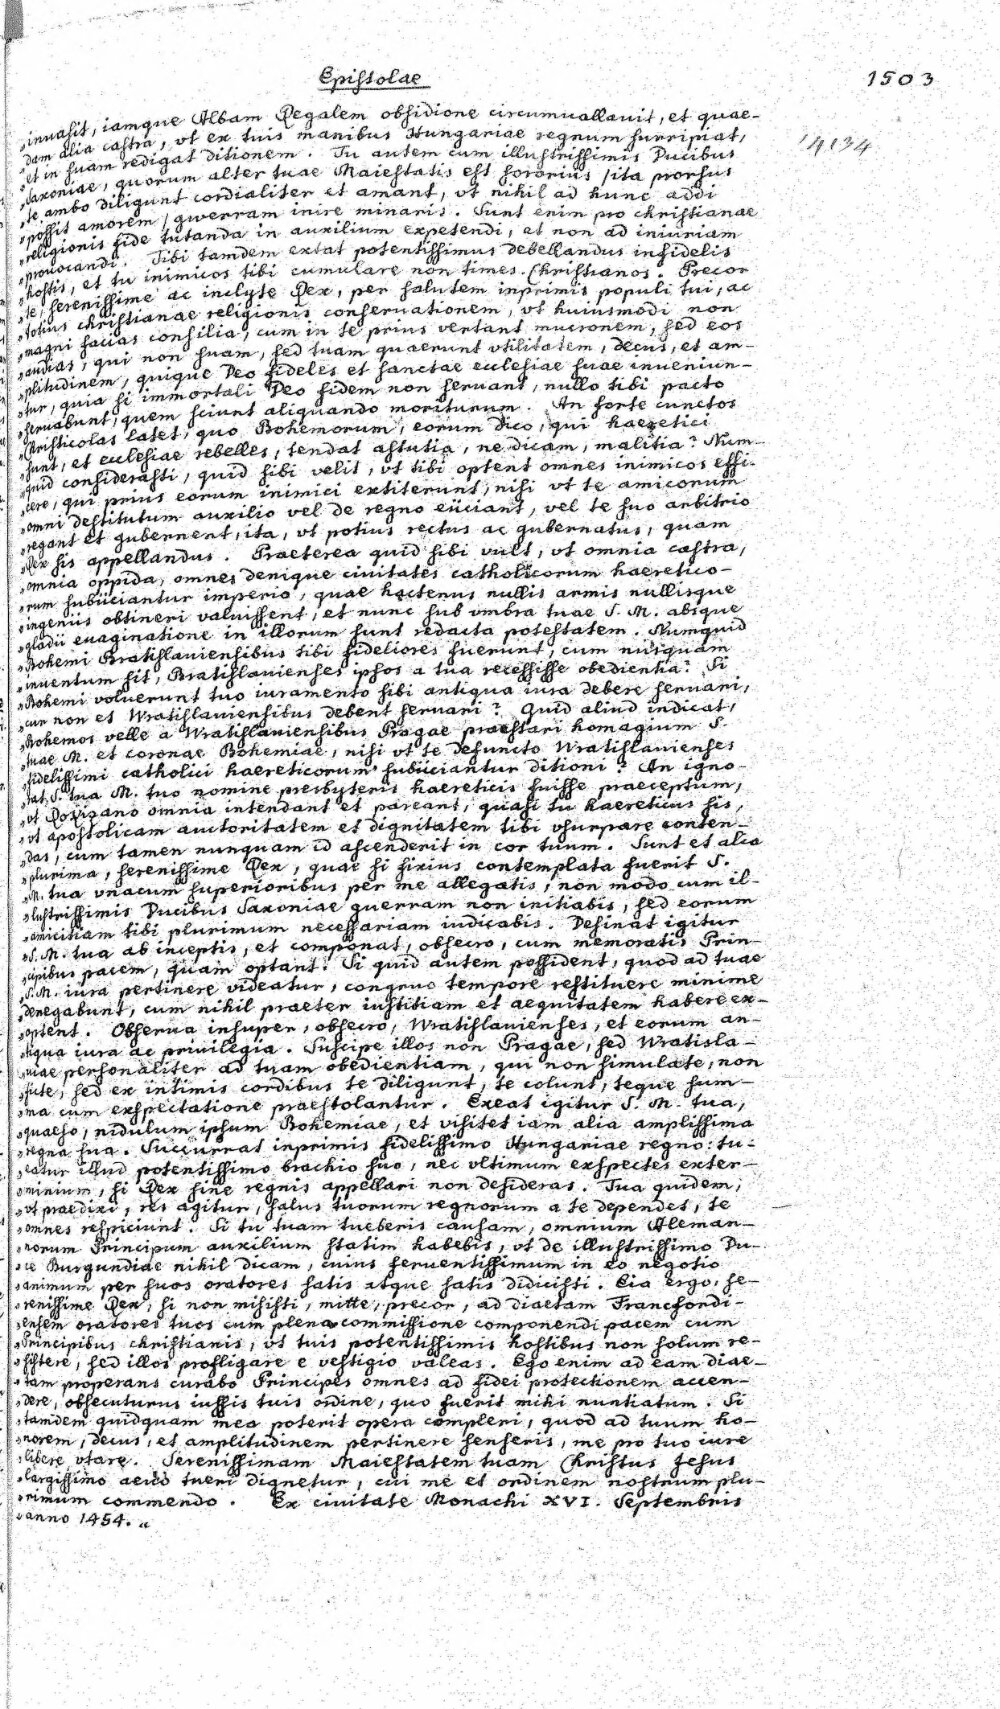 Epistolae
1503
14134
„inuasit, iamque Albam Regalem obsidione circumuallauit, et quae-
„dam alia castra, vt ex tuis manibus Hungariae regnum surripiat,
„et in suam redigat ditionem. Tu autem cum illustrissimis Ducibus
„Saxoniae, quorum alter tuae Maiestatis est sororius, ita prorsus
„te ambo diligunt cordialiter et amant, vt nihil ad hunc addi
„possit amorem, gwerram inire minaris. Sunt enim pro christianae
„religionis fide tutanda in auxilium expetendi, et non ad iniuriam
„prouocandi. Tibi tamdem extat potentissimus debellandus infidelis
„hostis, et tu inimicos tibi cumulare non times Christianos. Precor
„te, serenissime ac inclyte Rex, per salutem inprimis populi tui, ac
„totius christianae religionis conseruationem, vt huiusmodi non
„magni facias consilia, cum in te prius vertant mucronem, sed eos
„audias, qui non suam, sed tuam quaerunt vtilitatem, decus, et am-
„plitudinem, quique Deo fideles et sanctae ecclesiae suae inueniun-
„tur, quia si immortali Deo fidem non seruant, nullo tibi pacto
„seruabunt, quem sciunt aliquando moriturum. An forte cunctos
„Christicolas latet, quo Bohemorum, eorum dico, qui haeretici
„sunt, et ecclesiae rebelles, tendat astutia, ne dicam, malitia? Num-
„quid considerasti, quid sibi velit, vt tibi optent omnes inimicos effi-
„cere, qui prius eorum inimici extiterunt, nisi vt te amicorum
„omni destitutum auxilio vel de regno eiiciant, vel te suo arbitrio
„regant et gubernent, ita, vt potius rectus ac gubernatus, quam
„Rex sis appellandus. Praeterea quid sibi vult, vt omnia castra,
„omnia oppida, omnes denique ciuitates catholicorum haeretico-
„rum subiiciantur imperio, quae hactenus nullis armis nullisque
„ingeniis obtineri valuissent, et nunc sub vmbra tuae S. M. absque
„gladii euaginatione in illorum sunt redacta potestatem. Numquid
„Bohemi Bratislauiensibus tibi fideliores fuerunt, cum nusquam
„inuentum sit, Bratislauienses ipsos a tua recessisse obedientia? Si
„Bohemi voluerunt tuo iuramento sibi antiqua iura debere seruari,
„cur non et Wratislauiensibus debent seruari? Quid aliud indicat,
„Bohemos velle a Wratislauiensibus Pragae praestari homagium S.
„tuae M. et coronae Bohemiae, nisi vt te defuncto Wratislauienses
„fidelissimi catholici haereticorum subiiciantur ditioni? An igno-
„rat S. tua M. tuo nomine presbyteris haereticis fuisse praeceptum,
„vt Roxizano omnia intendant et pareant, quasi tu haereticus sis,
„vt apostolicam auctoritatem et dignitatem tibi vsurpare conten-
„das, cum tamen nunquam id ascenderit in cor tuum. Sunt et alia
„plurima, serenissime Rex, quae si fixius contemplata fuerit S.
„M. tua vnacum superioribus per me allegatis, non modo cum il-
„lustrissimis Ducibus Saxoniae guerram non initiabis, sed eorum
„amicitiam tibi plurimum necessariam iudicabis. Desinat igitur
„S. M. tua ab inceptis, et componat, obsecro, cum memoratis Prin-
„cipibus pacem, quam optant. Si quid autem possident, quod ad tuae
„S. M. iura pertinere videatur, congruo tempore restituere minime
„denegabunt, cum nihil praeter iustitiam et aequitatem habere ex-
„optent. Obserua insuper, obsecro, Wratislauienses, et eorum an-
„tiqua iura ac priuilegia. Suscipe illos non Pragae, sed Wratisla-
„uiae personaliter ad tuam obedientiam, qui non simulate, non
„ficte, sed ex intimis cordibus te diligunt, te colunt, teque sum-
„ma cum exspectatione praestolantur. Exeat igitur S. M. tua,
„quaeso, nidulum ipsum Bohemiae, et visitet iam alia amplissima
„regna sua. Succurrat inprimis fidelissimo Hungariae regno: tu-
„eatur illud potentissimo brachio suo, nec vltimum exspectes exter-
„minium, si Rex sine regnis appellari non desideras. Tua quidem,
„vt praedixi, res agitur, salus tuorum regnorum a te dependet, te
„omnes respiciunt. Si tu tuam tueberis causam, omnium Aleman-
„norum Principum auxilium statim habebis, vt de illustrissimo Du-
„ce Burgundiae nihil dicam, cuius feruentissimum in eo negotio
„animum per suos oratores satis atque satis didicisti. Eia ergo, se-
„renissime Rex, si non misisti, mitte, precor, ad diaetam Francfordi-
„ensem oratores tuos cum plena commissione componendi pacem cum
„Principibus christianis, vt tuis potentissimis hostibus non solum re-
„sistere, sed illos profligare e vestigio valeas. Ego enim ad eam diae-
„tam properans curabo Principes omnes ad fidei protectionem accen-
„dere, obsecuturus iussis tuis ordine, quo fuerit mihi nuntiatum. Si
„tamdem quidquam mea poterit opera compleri, quod ad tuum ho-
„norem, decus, et amplitudinem pertinere senseris, me pro tuo iure
„libere vtare. Serenissimam Maiestatem tuam Christus Jesus
„largissimo aeuo tueri dignetur, cui me et ordinem nostrum plu-
„rimum commendo. Ex ciuitate Monachi XVI. Septembris
„anno 1454.„